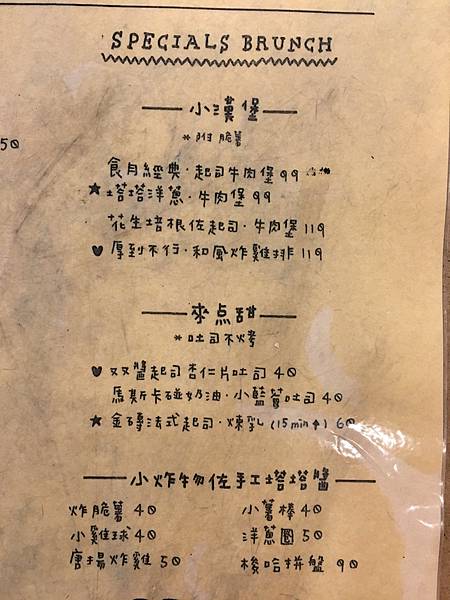 SPECIALS BRUNCH
小漢堡
*附脆薯
50
食月經典·起司牛肉堡 99
★塔塔洋蔥·牛肉堡 99
花生培根佐起司·牛肉堡 119
♥厚到不行·和風炸雞排 119
來点甜
*吐司不烤
♥双醬起司杏仁片吐司 40
馬斯卡碰奶油·小藍莓吐司 40
★金磚法式起司·煉乳 (15min↑) 60
小炸物佐手工塔塔醬
炸脆薯 40
小薯棒 40
小雞球 40
洋蔥圈 50
唐揚炸雞 50
梭哈拼盤 90